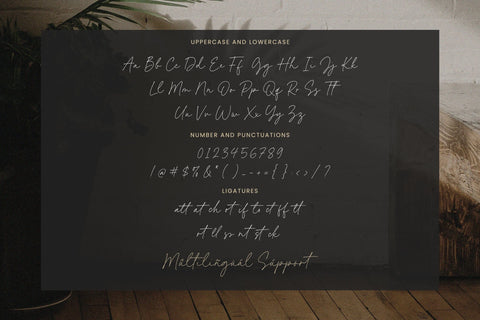 UPPERCASE AND LOWERCASE
Aa Bb Cc Dd Ee Ff Gg Hh Ii Jj Kk
Ll Mm Nn Oo Pp Qq Rr Ss Tt
Uu Vv Ww Xx Yy Zz
NUMBER AND PUNCTUATIONS
0123456789
! @ # $ % & * ( ) _ - + = { } : < > / ?
LIGATURES
att at ch rt if to ct ff tt
rt ll ss nt st ck
Múltilingúál Súppórt